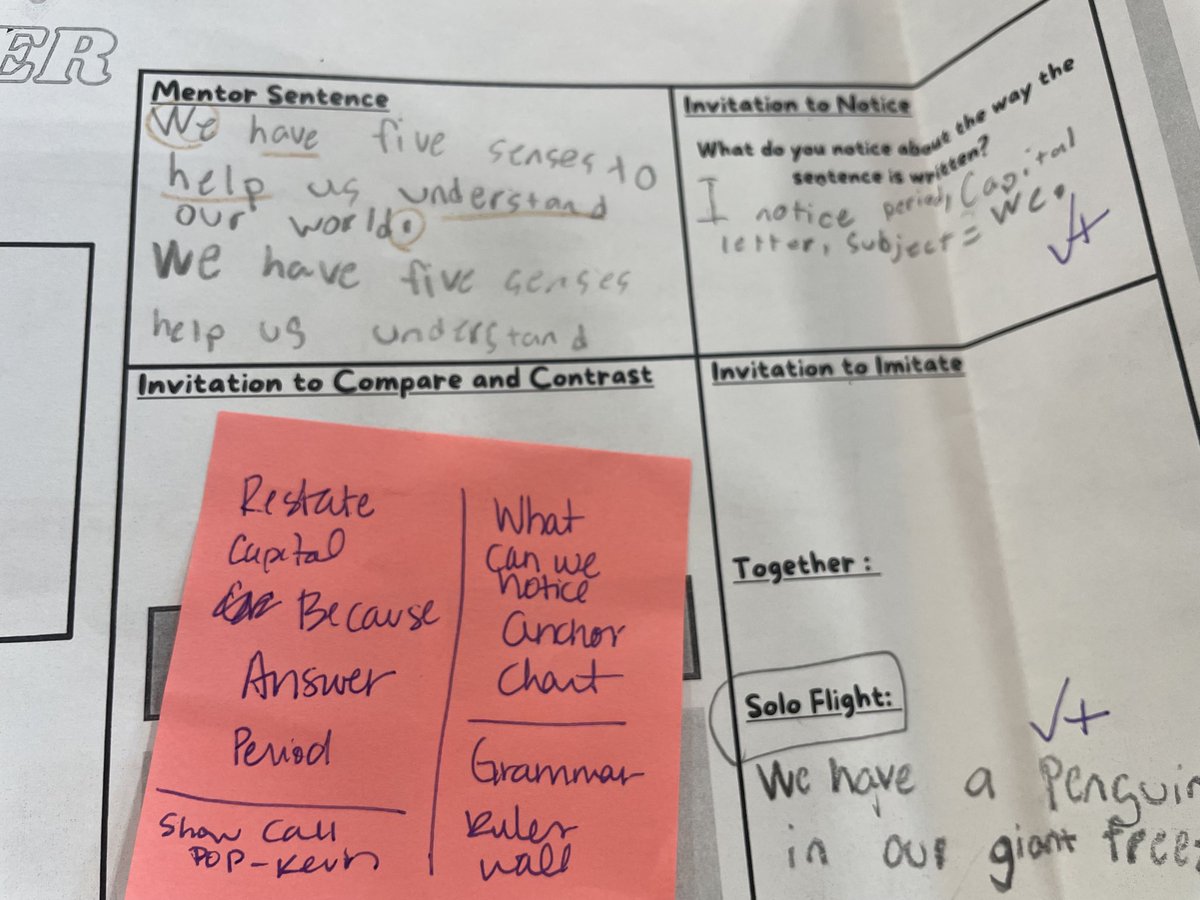 ER
Mentor Sentence
We have five senses to
help us understand
our world.
We have five senses
help us understand
Invitation to Notice
What do you notice about the way the
sentence is written?
I notice period, Capital
letter, subject = We.
√+
Invitation to Compare and Contrast
Restate
Capital
Because
Answer
Period
Show Call
POP-Kevin
What
can we
notice
anchor
Chart
Grammar
Rules
wall
Invitation to Imitate
Together:
Solo Flight:
√+
We have a Penguin
in our giant freez